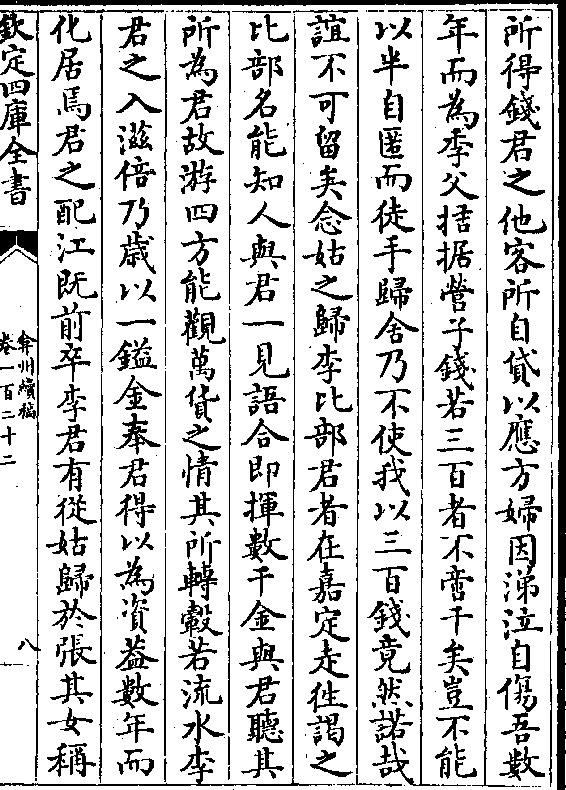 所得錢君之他客所自貸以應方婦因涕泣自傷吾數
年而為季父拮据營子錢若三百者不啻千矣豈不能
以半自匿而徒手歸舍乃不使我以三百錢竟然諾哉
誼不可留矣念姑之歸李比部君者在嘉定走往謁之
比部名能知人與君一見語合即揮數千金與君聽其
所為君故游四方能觀萬貨之情其所轉轂若流水李
君之入滋倍乃歲以一鎰金奉君得以為資益數年而
化居焉君之配江既前卒李君有從姑歸於張其女稱
欽定四庫全書
弇州續稿
卷一百二十二
八